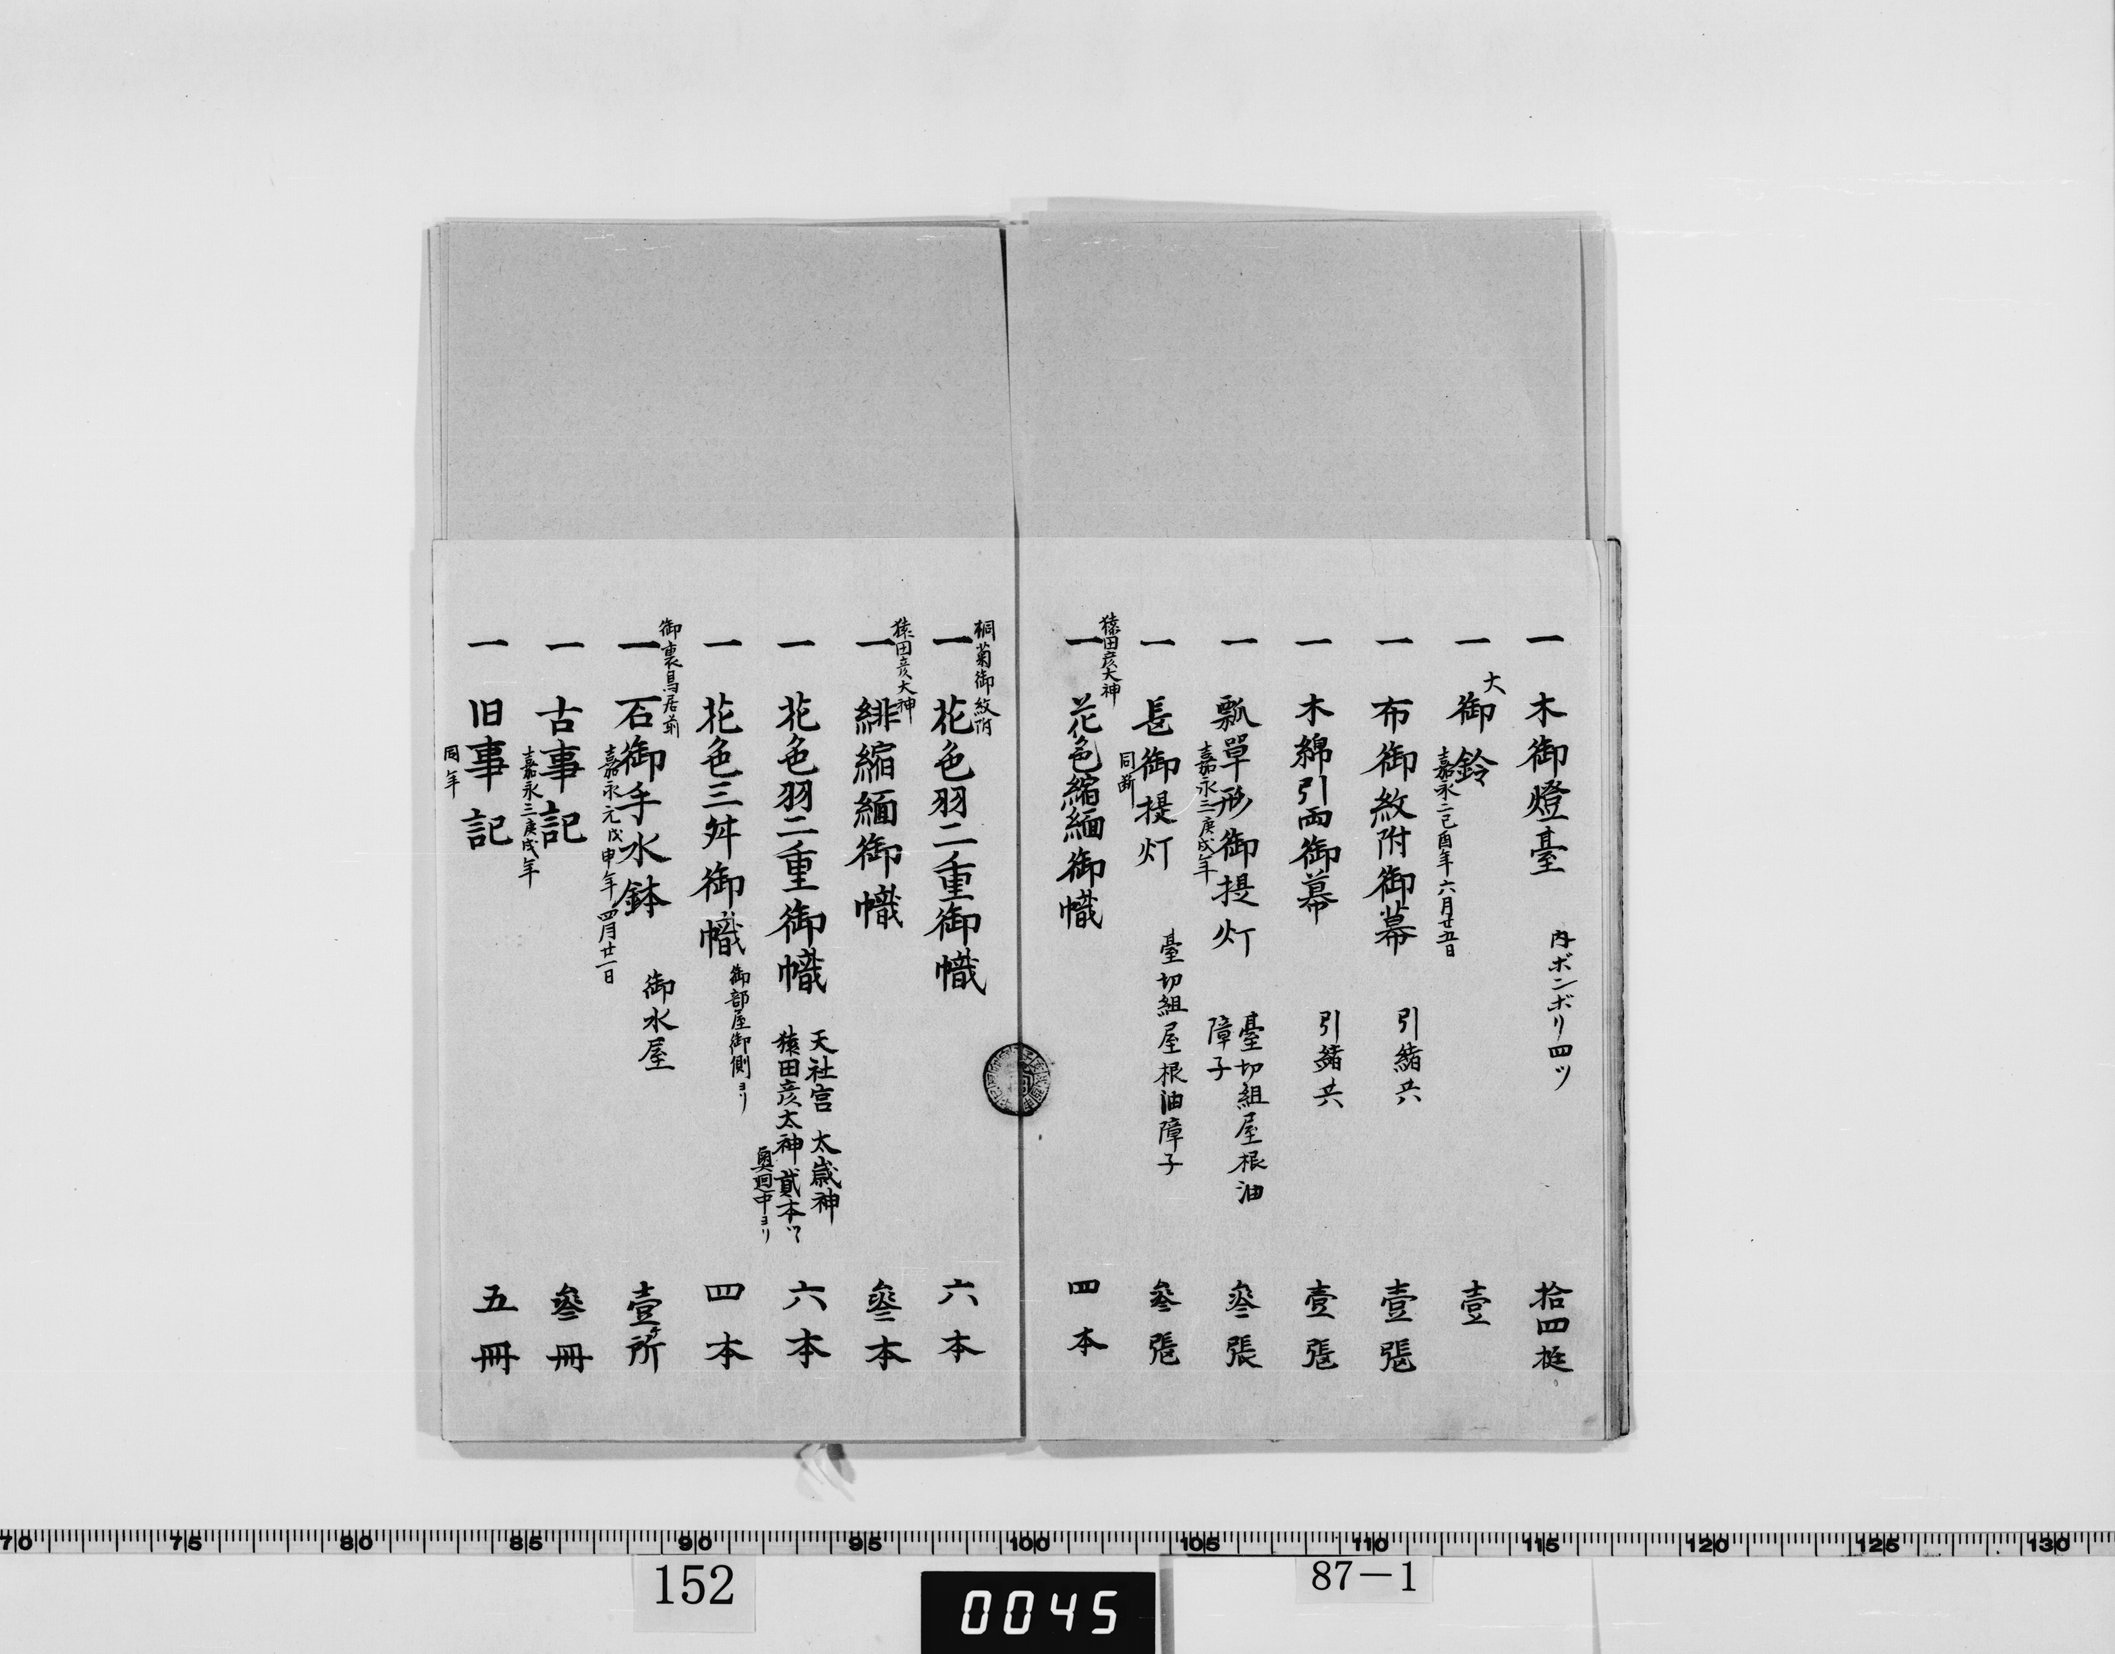 一 木御燈臺 内ボンボリ四ツ 拾四挺
一 大御鈴 壹
嘉永二己酉年六月廿五日
一 布御紋附御幕 引緒共 壹張
一 木綿引両御幕 引緒共 壹張
一 瓢單形御提灯 臺切組屋根油
障子 叄張
嘉永三庚戌年
一 長御提灯 臺切組屋根油障子 叄張
同断
猿田彦大神
一 花色縮緬御幟 四本
桐菊御紋附
一 花色羽二重御幟 六本
猿田彦大神
一 緋縮緬御幟 叄本
一 花色羽二重御幟 天社宮 太歳神
猿田彦太神 貳本ツヽ 六本
奥廻中ヨリ
一 花色三舛御幟 御部屋御側ヨリ 四本
御裏鳥居前
一 石御手水鉢 御水屋 壹ケ所
嘉永元戊申年四月廿一日
一 古事記 叄冊
嘉永三庚戌年
一 旧事記 五冊
同年
70 75 80 85 90 95 100 105 110 115 120 125 130
152
0045
87-1